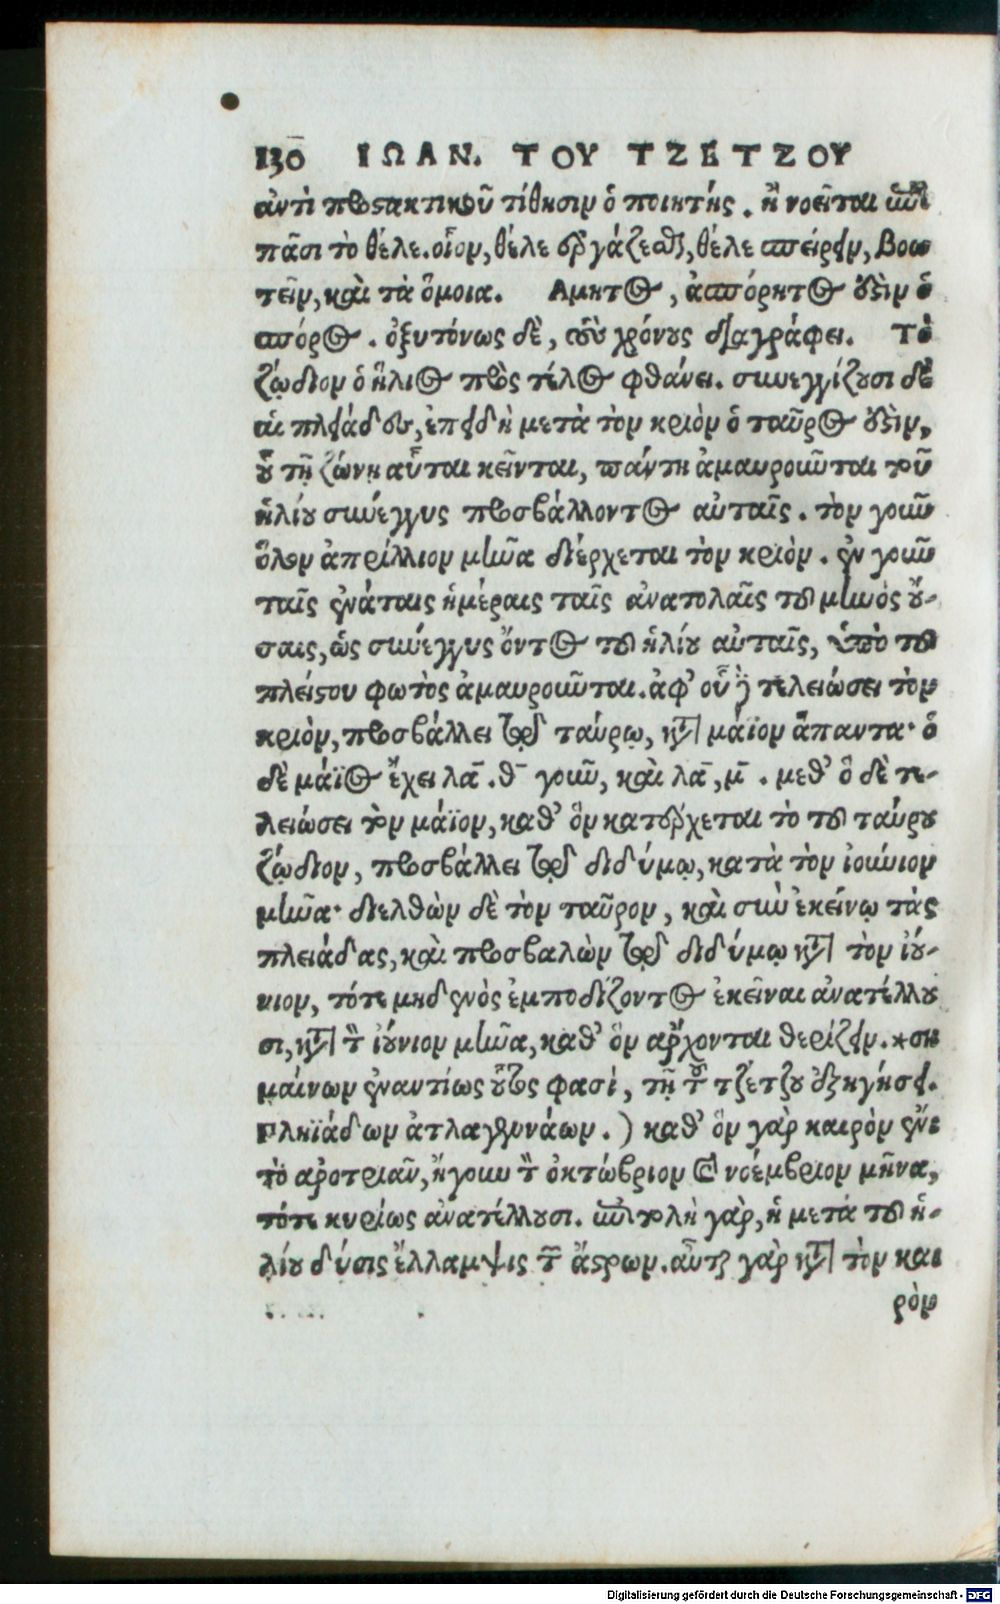 130 ΙΩΑΝ. ΤΟΥ ΤΖΕΤΖΟΥ
ἀντὶ προστακτικοῦ τίθησιν ὁ ποιητής. ἢ νοεῖται ἐπὶ
πᾶσι τὸ θέλε. οἷον, θέλε ἐργάζεσθαι, θέλε σπείρειν, βοω
τεῖν, καὶ τὰ ὅμοια. Αμητος, ἀπόρητος ἐστὶν ὁ
σπόρος. ὀξυτόνως δὲ, τοὺς χρόνους διαγράφει. Τὸ
ζώδιον ὁ ἥλιος πρὸς τέλος φθάνει. συνεγγίζουσι δὲ
αἱ πλειάδες, ἐπειδὴ μετὰ τὸν κριὸν ὁ ταῦρος ἐστὶν,
οὗ τῇ ζώνῃ αὗται κεῖνται, πάντη ἀμαυροῦνται τοῦ
ἡλίου σύνεγγυς προσβάλλοντος αὐταῖς. τὸν γοῦν
ὅλον ἀπρίλλιον μῆνα διέρχεται τὸν κριὸν. ἐν γοῦν
ταῖς ἐνάταις ἡμέραις ταῖς ἀνατολαῖς τοῦ μηνὸς οὔ-
σαις, ὡς σύνεγγυς ὄντος τοῦ ἡλίου αὐταῖς, ὑπὸ τοῦ
πλείστου φωτὸς ἀμαυροῦνται. ἀφ' οὗ δὲ τελειώσει τὸν
κριὸν, προσβάλλει τῷ ταύρῳ, κατὰ μάϊον ἅπαντα· ὁ
δὲ μάϊος ἔχει λα̅. θ̅ γοῦν, καὶ λα̅, μ̅. μεθ' ὃ δὲ τε-
λειώσει τὸν μάϊον, καθ' ὃν κατέρχεται τὸ τοῦ ταύρου
ζώδιον, προσβάλλει τῷ διδύμῳ, κατὰ τὸν ἰούνιον
μῆνα· διελθὼν δὲ τὸν ταῦρον, καὶ σὺν ἐκείνῳ τὰς
πλειάδας, καὶ προσβαλὼν τῷ διδύμῳ κατὰ τὸν ἰού-
νιον, τότε μηδενὸς ἐμποδίζοντος ἐκεῖναι ἀνατέλλου
σι, κατὰ τὸν ἰούνιον μῆνα, καθ' ὃν ἄρχονται θερίζειν. *ση
μαίνων ἐναντίως οὕτως φασὶ, τῇ τοῦ τζέτζου ἐξηγήσει.
Πληϊάδων ἀτλαγενάων.) καθ' ὃν γὰρ καιρὸν ἐνε
τὸ ἀροτριᾶν, ἤγουν τὸν ὀκτώβριον καὶ νοέμβριον μῆνα,
τότε κυρίως ἀνατέλλουσι. ἐπιτολὴ γὰρ, ἡ μετὰ τοῦ ἡ-
λίου δύσις ἔλλαμψις τῶν ἄστρων. αὗται γὰρ κατὰ τὸν και
ρὸν
Digitalisierung gefördert durch die Deutsche Forschungsgemeinschaft - DFG